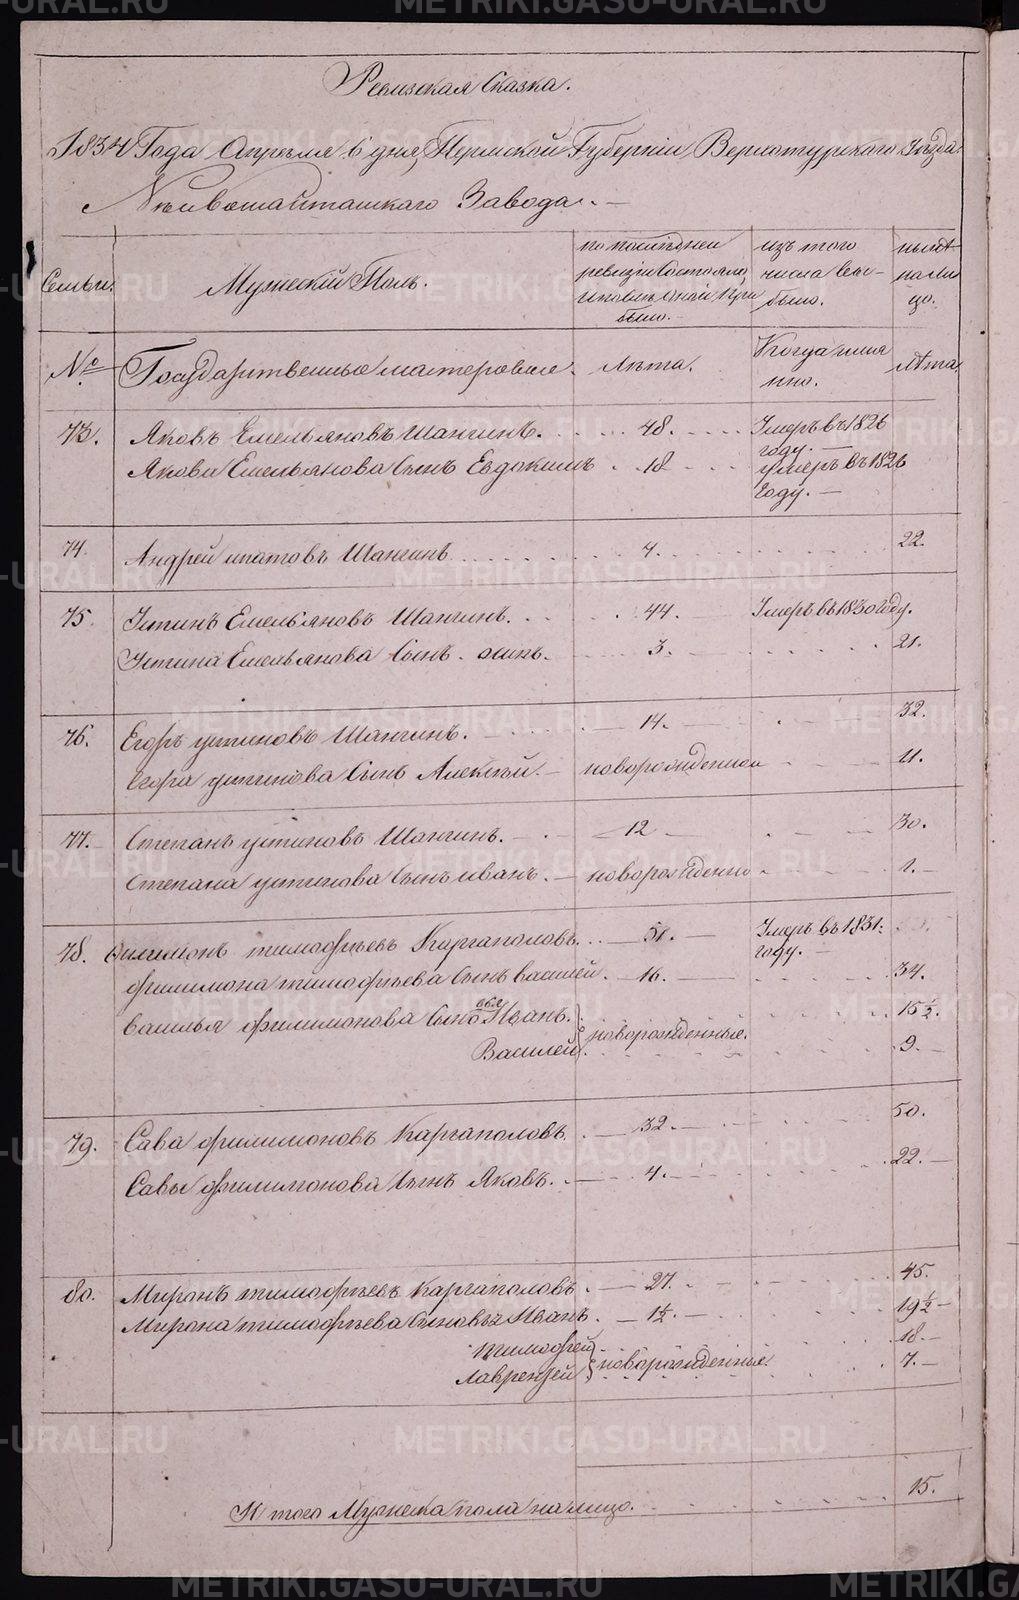 Ревизская Сказка.
1834 Года Апреля 6 дня, Пермской Губерніи Верхотурскаго Уезда.
Нейвошайтанскаго Завода.
Семьи.
Мужескій Полъ.
по последней
ревизіи состояло,
и после оной при
было.
изъ того
числа вы-
было.
ныне
на ли
цо.
№
Государственные мастеровые.
Лета.
Когда имя
нно.
лета.
73. Яковъ Емельяновъ Шангинъ. 48. Умеръ въ 1826
году.
Якова Емельянова Сынъ Евдокимъ 18 умеръ въ 1826
году.
74. Андрей ипатовъ Шангинъ 4. 22.
75. Устинъ Емельяновъ Шангинъ. 44. Умеръ въ 1830 году.
Устина Емельянова Сынъ осипъ. 3. 21.
76. Егоръ устиновъ Шангинъ. 14. 32.
Егора устинова Сынъ Алексей. новорожденной 11.
77. Степанъ устиновъ Шангинъ. 12 30.
Степана устинова Сынъ иванъ. новорожденно 1.
78. Филимонъ тимофеевъ Каргаполовъ. 51. Умеръ въ 1831.
году.
филимона тимофеева Сынъ василей. 16. 34.
василья филимонова Сыно вья Иванъ. 15½.
Василей новорожденные. 9.
79. Сава филимоновъ Каргаполовъ. 32. 50.
Савы филимонова Сынъ Яковъ. 4. 22.
80. Миронъ тимофеевъ Каргаполовъ. 27. 45.
Мирона тимофеева Сыновья Иванъ. 1½. 19½
тимофей 18.
Лаврентей новорожденные. 7.
И того Мужеска пола на лицо. 15.
METRIKI.GASO-URAL.RU